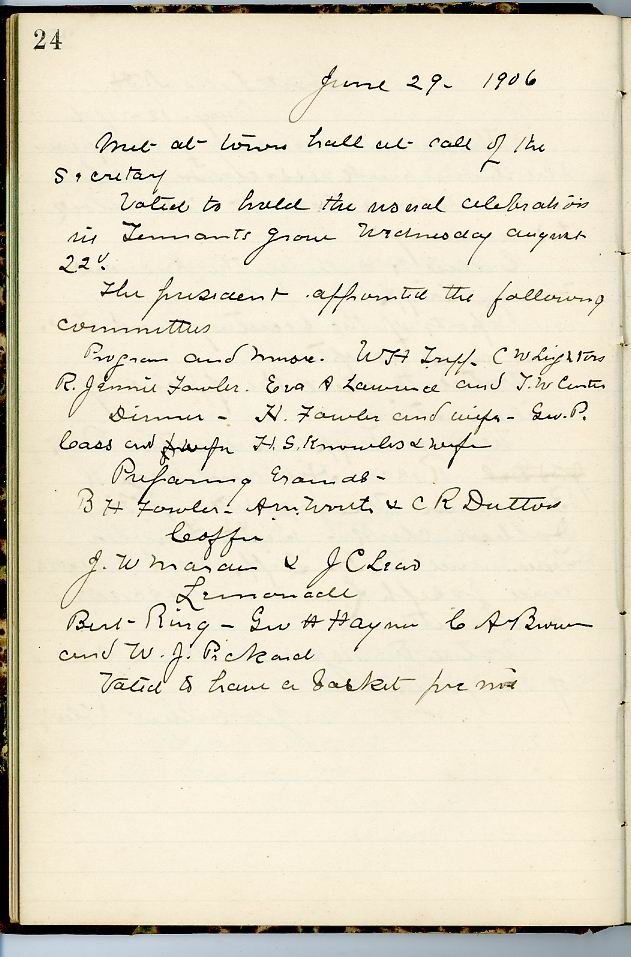 24
June 29 - 1906
Met at town hall at call of the
Secretay
Voted to hold the usual celebration
in Tennants grove Wednesday august
22d.
The president appointed the following
committees
Program and music. W H Tripp. C W
R. Jennie Fowler. Eva A Lawrence and J. W
Dinner - H. Fowler and wife - Geo. P.
Cass and wife H. S. Knowles & wife
Preparing Grounds -
B H Fowler - & C R Dutton
Coffee
J. W & J C
Lemonade
Bert Ring - Geo H C A Brown
and W. J. Pickard
Voted to have a basket